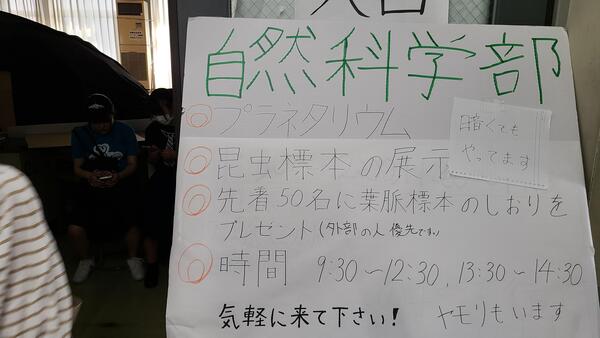 自然科学部
◎プラネタリウム
暗くても
やってます
◎昆虫標本の展示
◎先着50名に葉脈標本のしおりを
プレゼント(外部の人優先です。)
◎時間 9:30～12:30, 13:30～14:30
気軽に来て下さい!
ヤモリもいます